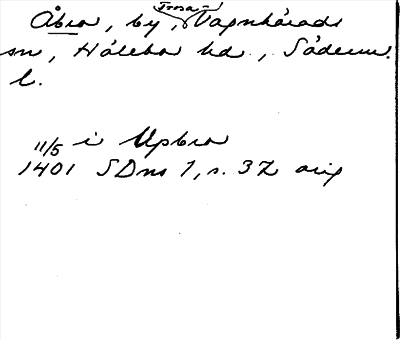 Åbro, by, Trosa-Vagnhärads
sn, Hölebo hd, Söderm.
l.
11/5 i Upbro
1401 SDns 1, s. 32 orig